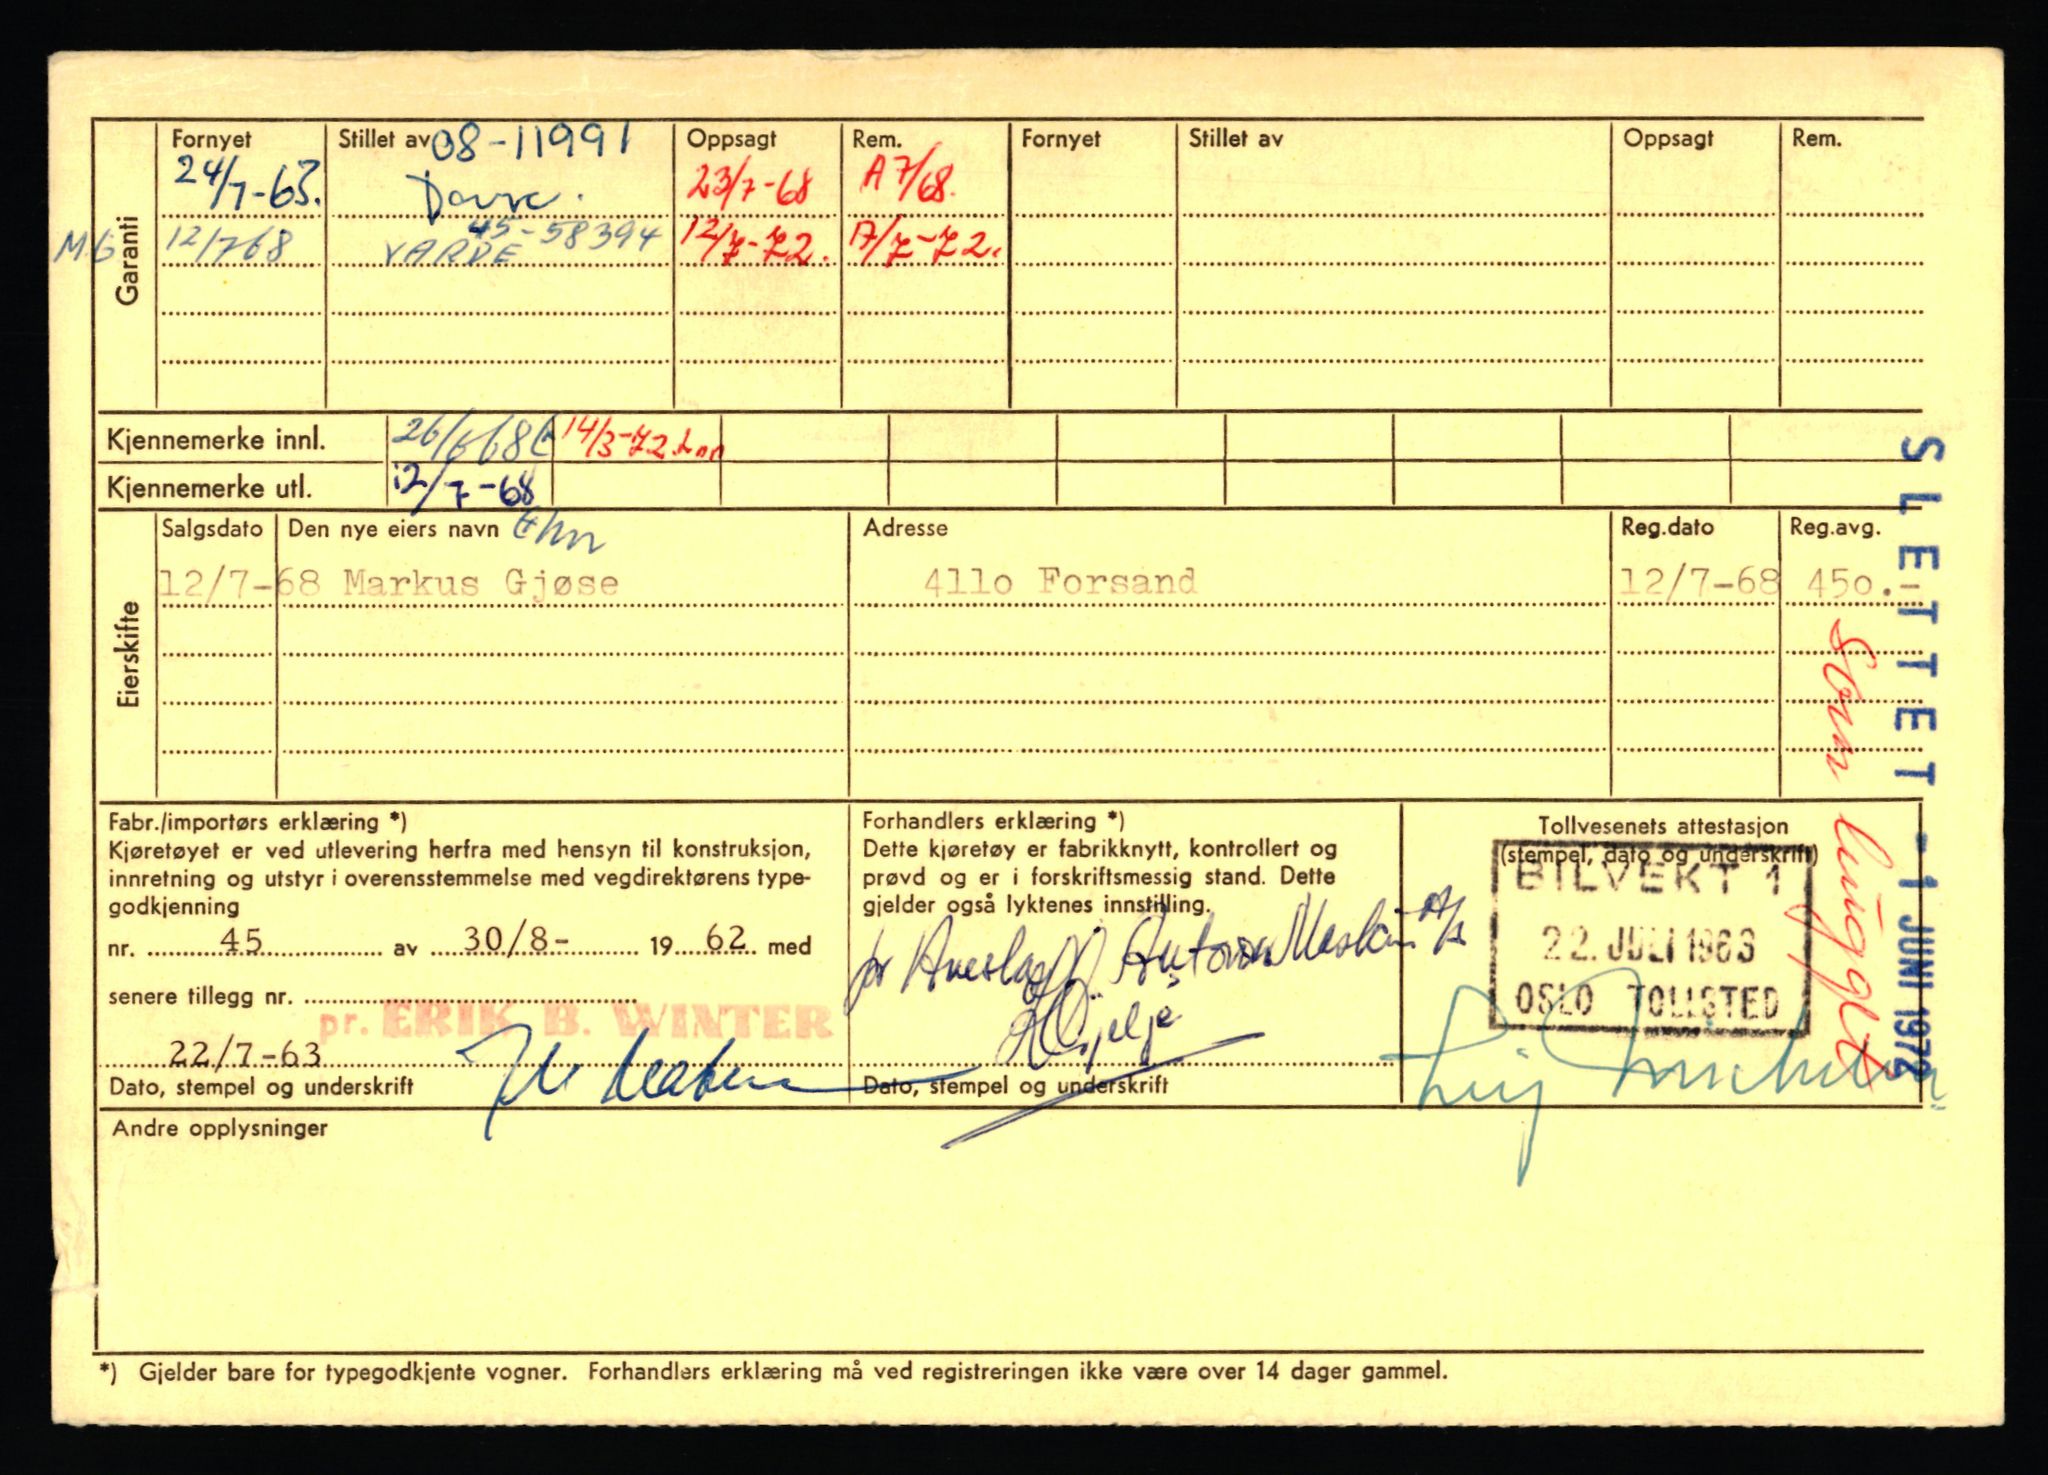 Garanti
Fornyet Stillet av 08-11991 Oppsagt Rem. Fornyet Stillet av Oppsagt Rem.
24/7-63. 23/7-68 A 7/68.
MG 12/768 VARDE 45-58394 12/7-72. 17/7-72.
Kjennemerke innl. 26/668 14/3-72.
Kjennemerke utl. 12/7-68
Eierskifte
Salgsdato Den nye eiers navn Adresse Reg.dato Reg.avg.
12/7-68 Markus Gjøse 4110 Forsand 12/7-68 450.-
SLETTET - 1 JUNI 1972
Som hugget
Fabr./importørs erklæring *)
Kjøretøyet er ved utlevering herfra med hensyn til konstruksjon,
innretning og utstyr i overensstemmelse med vegdirektørens type-
godkjenning
nr. 45 av 30/8- 1962 med
senere tillegg nr.
pr. ERIK B. WINTER
22/7-63
Dato, stempel og underskrift
Forhandlers erklæring *)
Dette kjøretøy er fabrikknytt, kontrollert og
prøvd og er i forskriftsmessig stand. Dette
gjelder også lyktenes innstilling.
pr A/S
Dato, stempel og underskrift
Tollvesenets attestasjon
(stempel, dato og underskrift)
BILVEKT 1
22. JULI 1963
OSLO TOLLSTED
Andre opplysninger
*) Gjelder bare for typegodkjente vogner. Forhandlers erklæring må ved registreringen ikke være over 14 dager gammel.